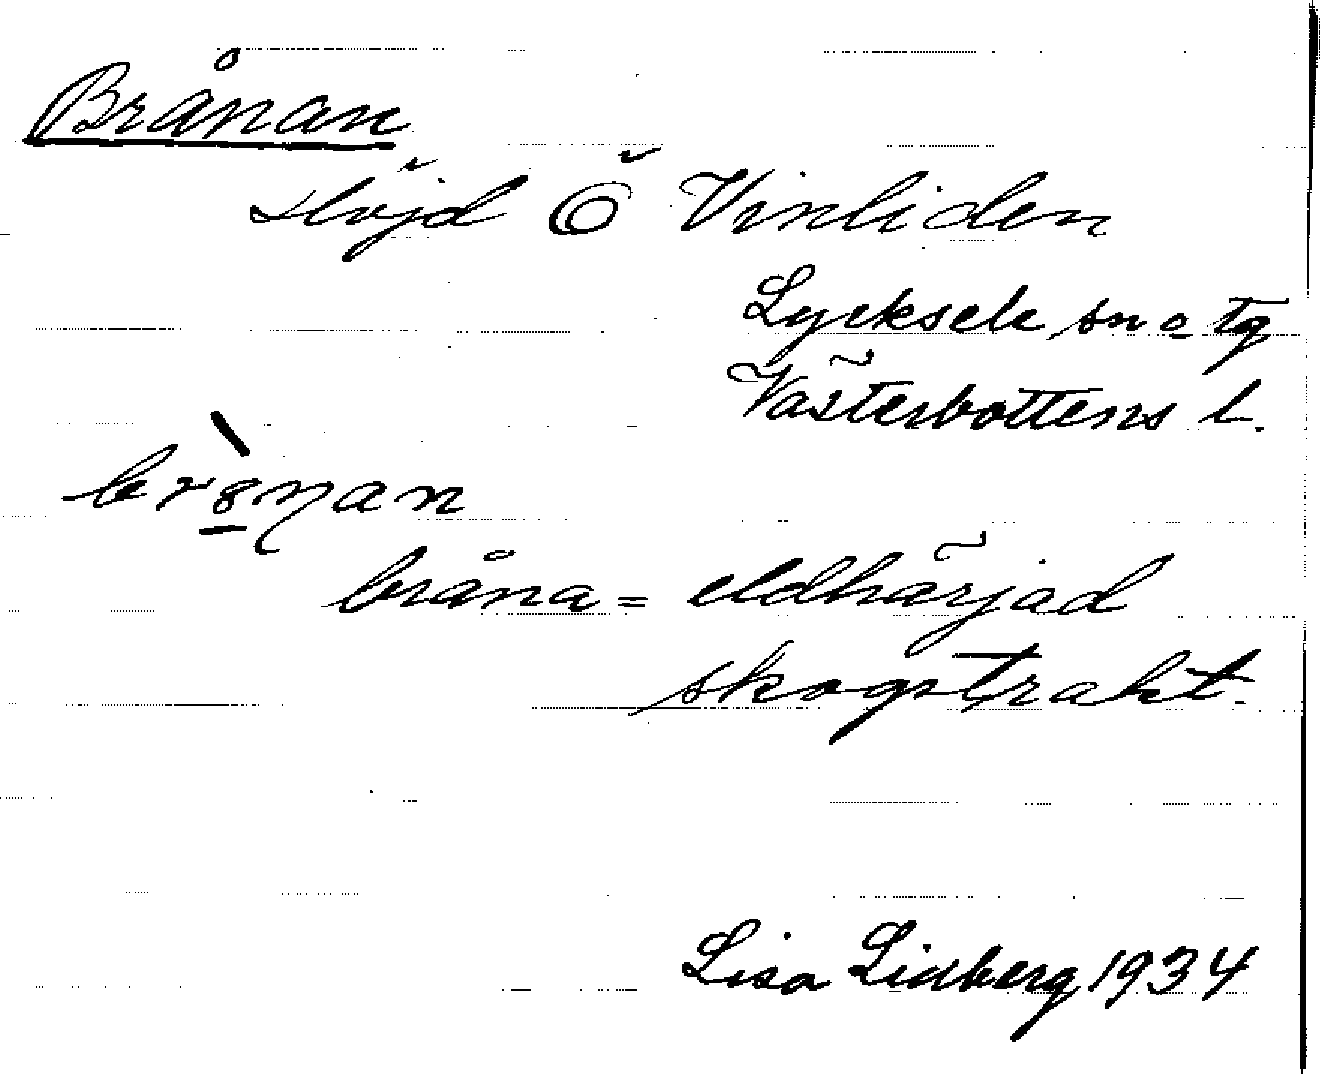 Brånan
slöjd Ö Vinliden
Lycksele sn o tg
Västerbottens l.
bråna = eldhärjad
skogstrakt.
Lisa Lidberg 1934